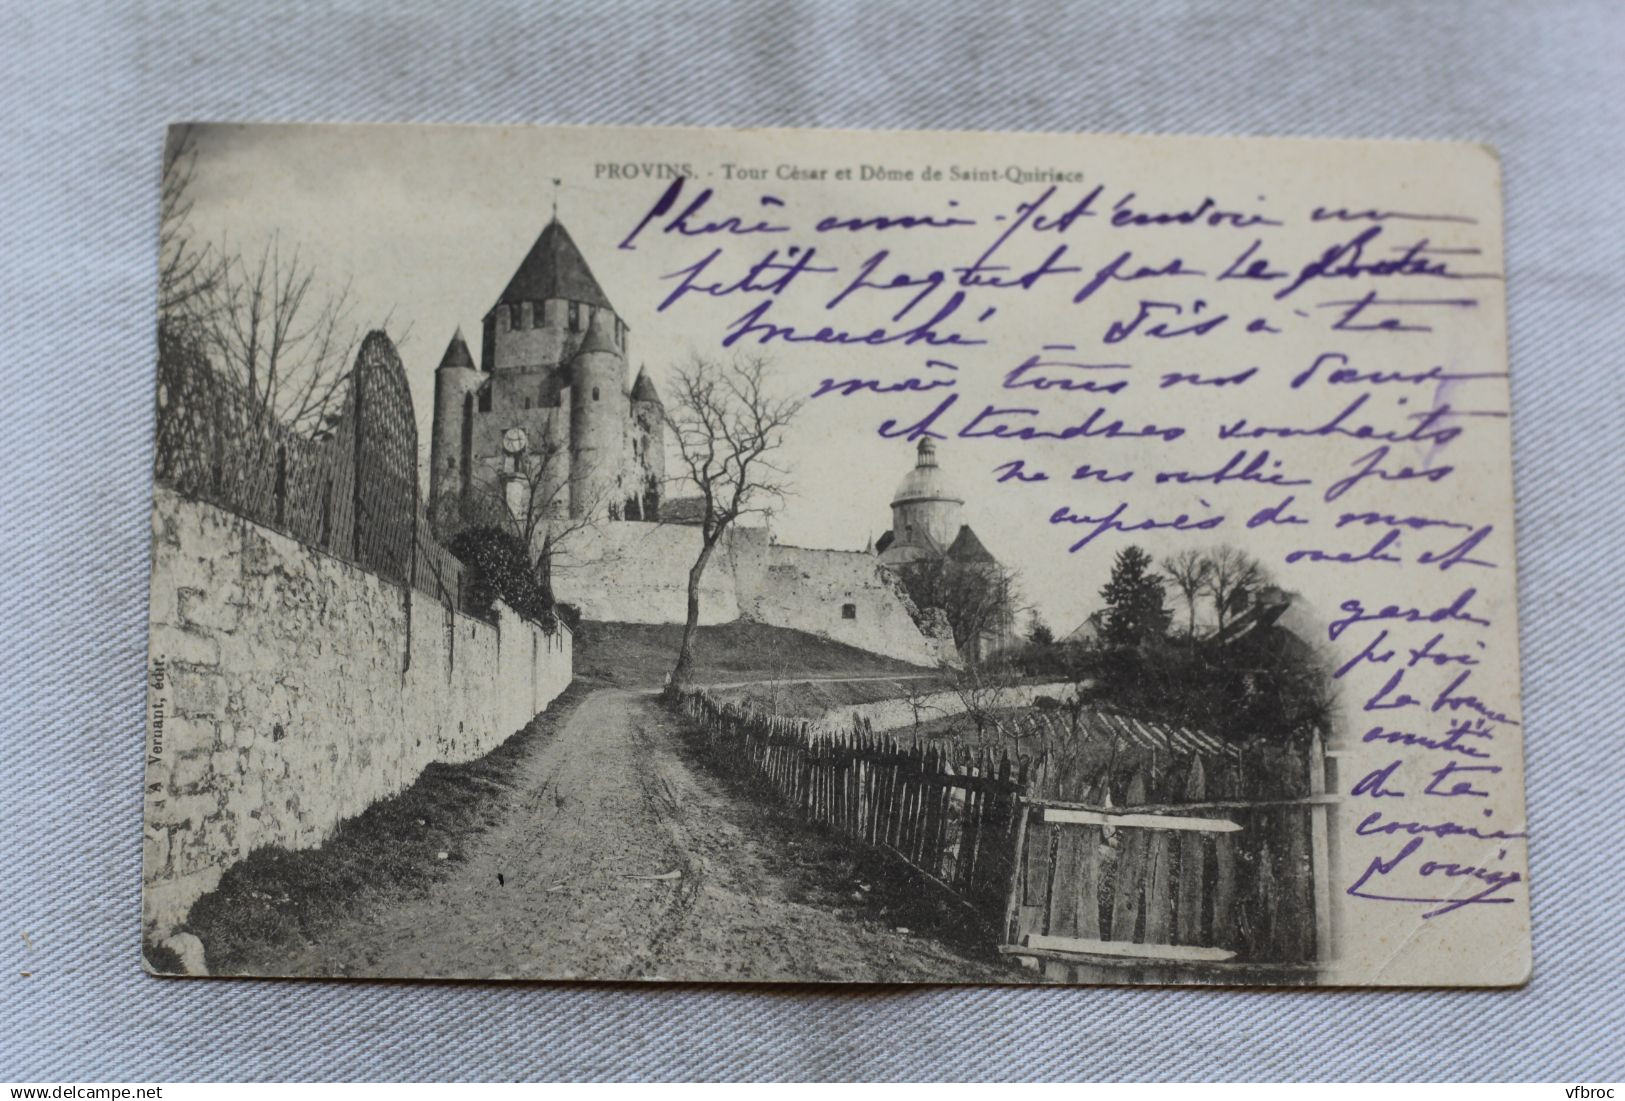 PROVINS. - Tour César et Dôme de Saint-Quiriace
Chère amie - Je t'envoie un
petit paquet par le
marché _ Dis à ta
mère tous nos doux
et tendres souhaits
ne m'oublie pas
auprès de mon
oncle et
garde
pr toi
la bonne
amitié
de ta
cousine
Louise
A. Vernant, édit.
Cpa779
vfbroc